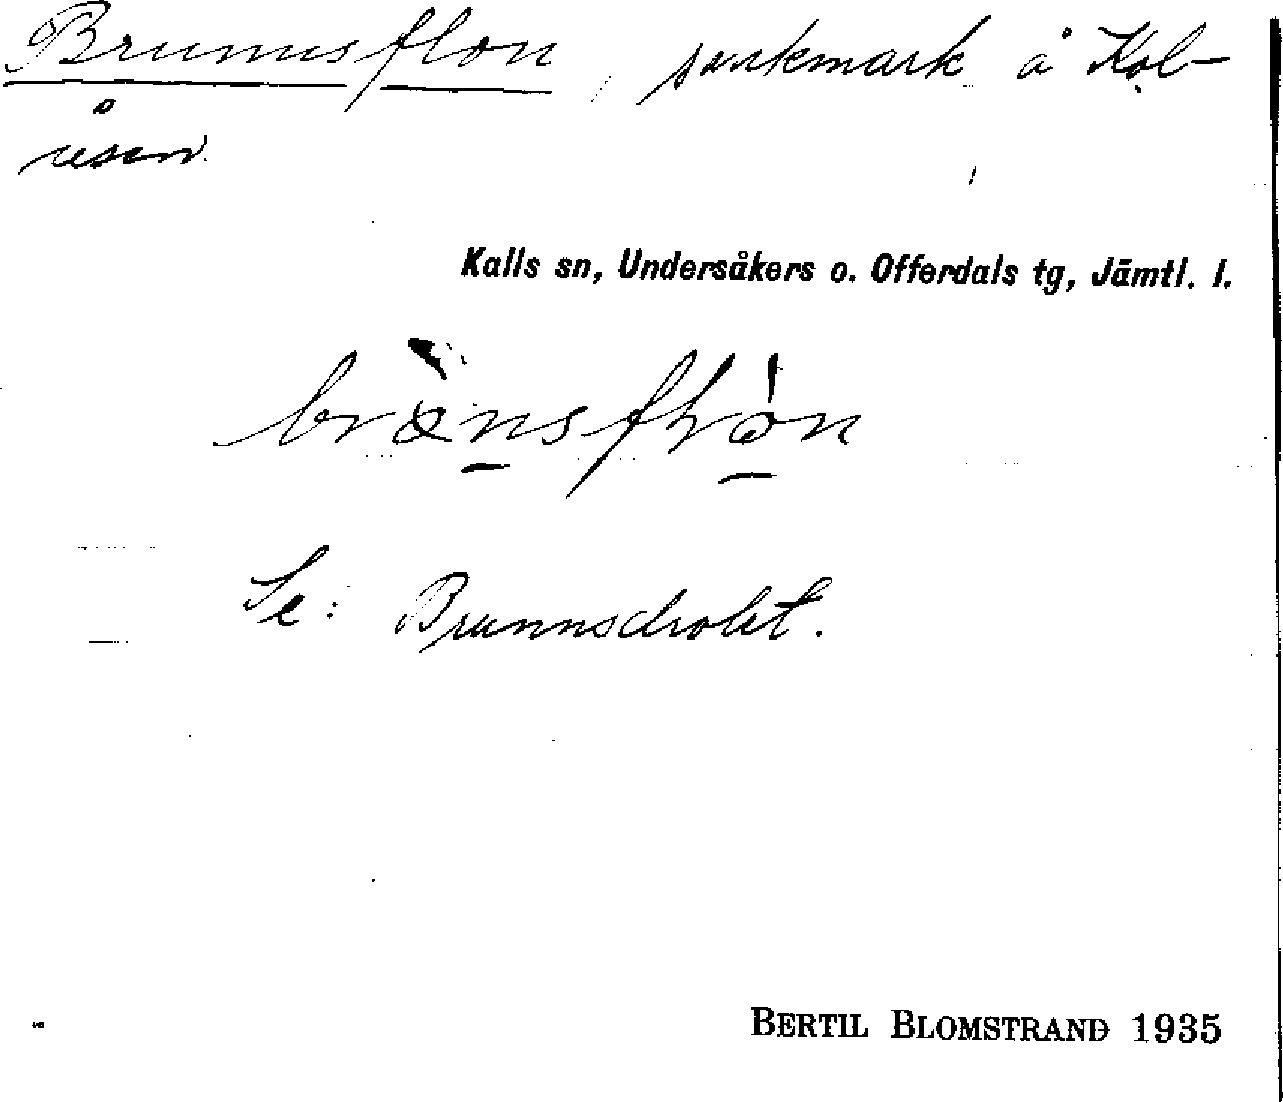 Brunnsflon, sankmark å Kol-
åsen
Kalls sn, Undersåkers o. Offerdals tg, Jämtl. l.
Se: Brunnsdrolet.
BERTIL BLOMSTRAND 1935